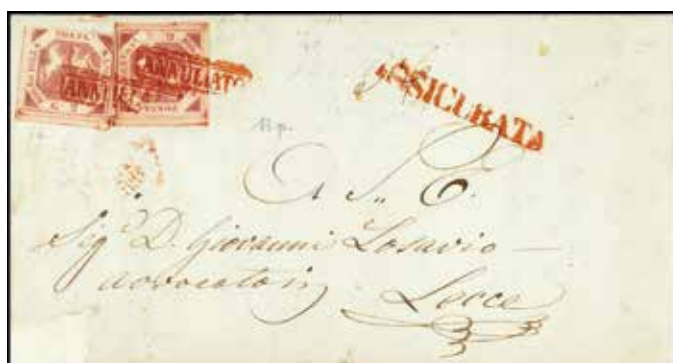 ANNULLATO
ANNULLATO
ASSICURATA
A S. E.
Sigr D. Giovanni Losavio —
avvocato in
Lecce